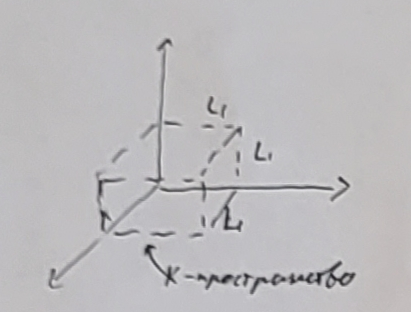 L₁
L₁
L₁
K-пространство